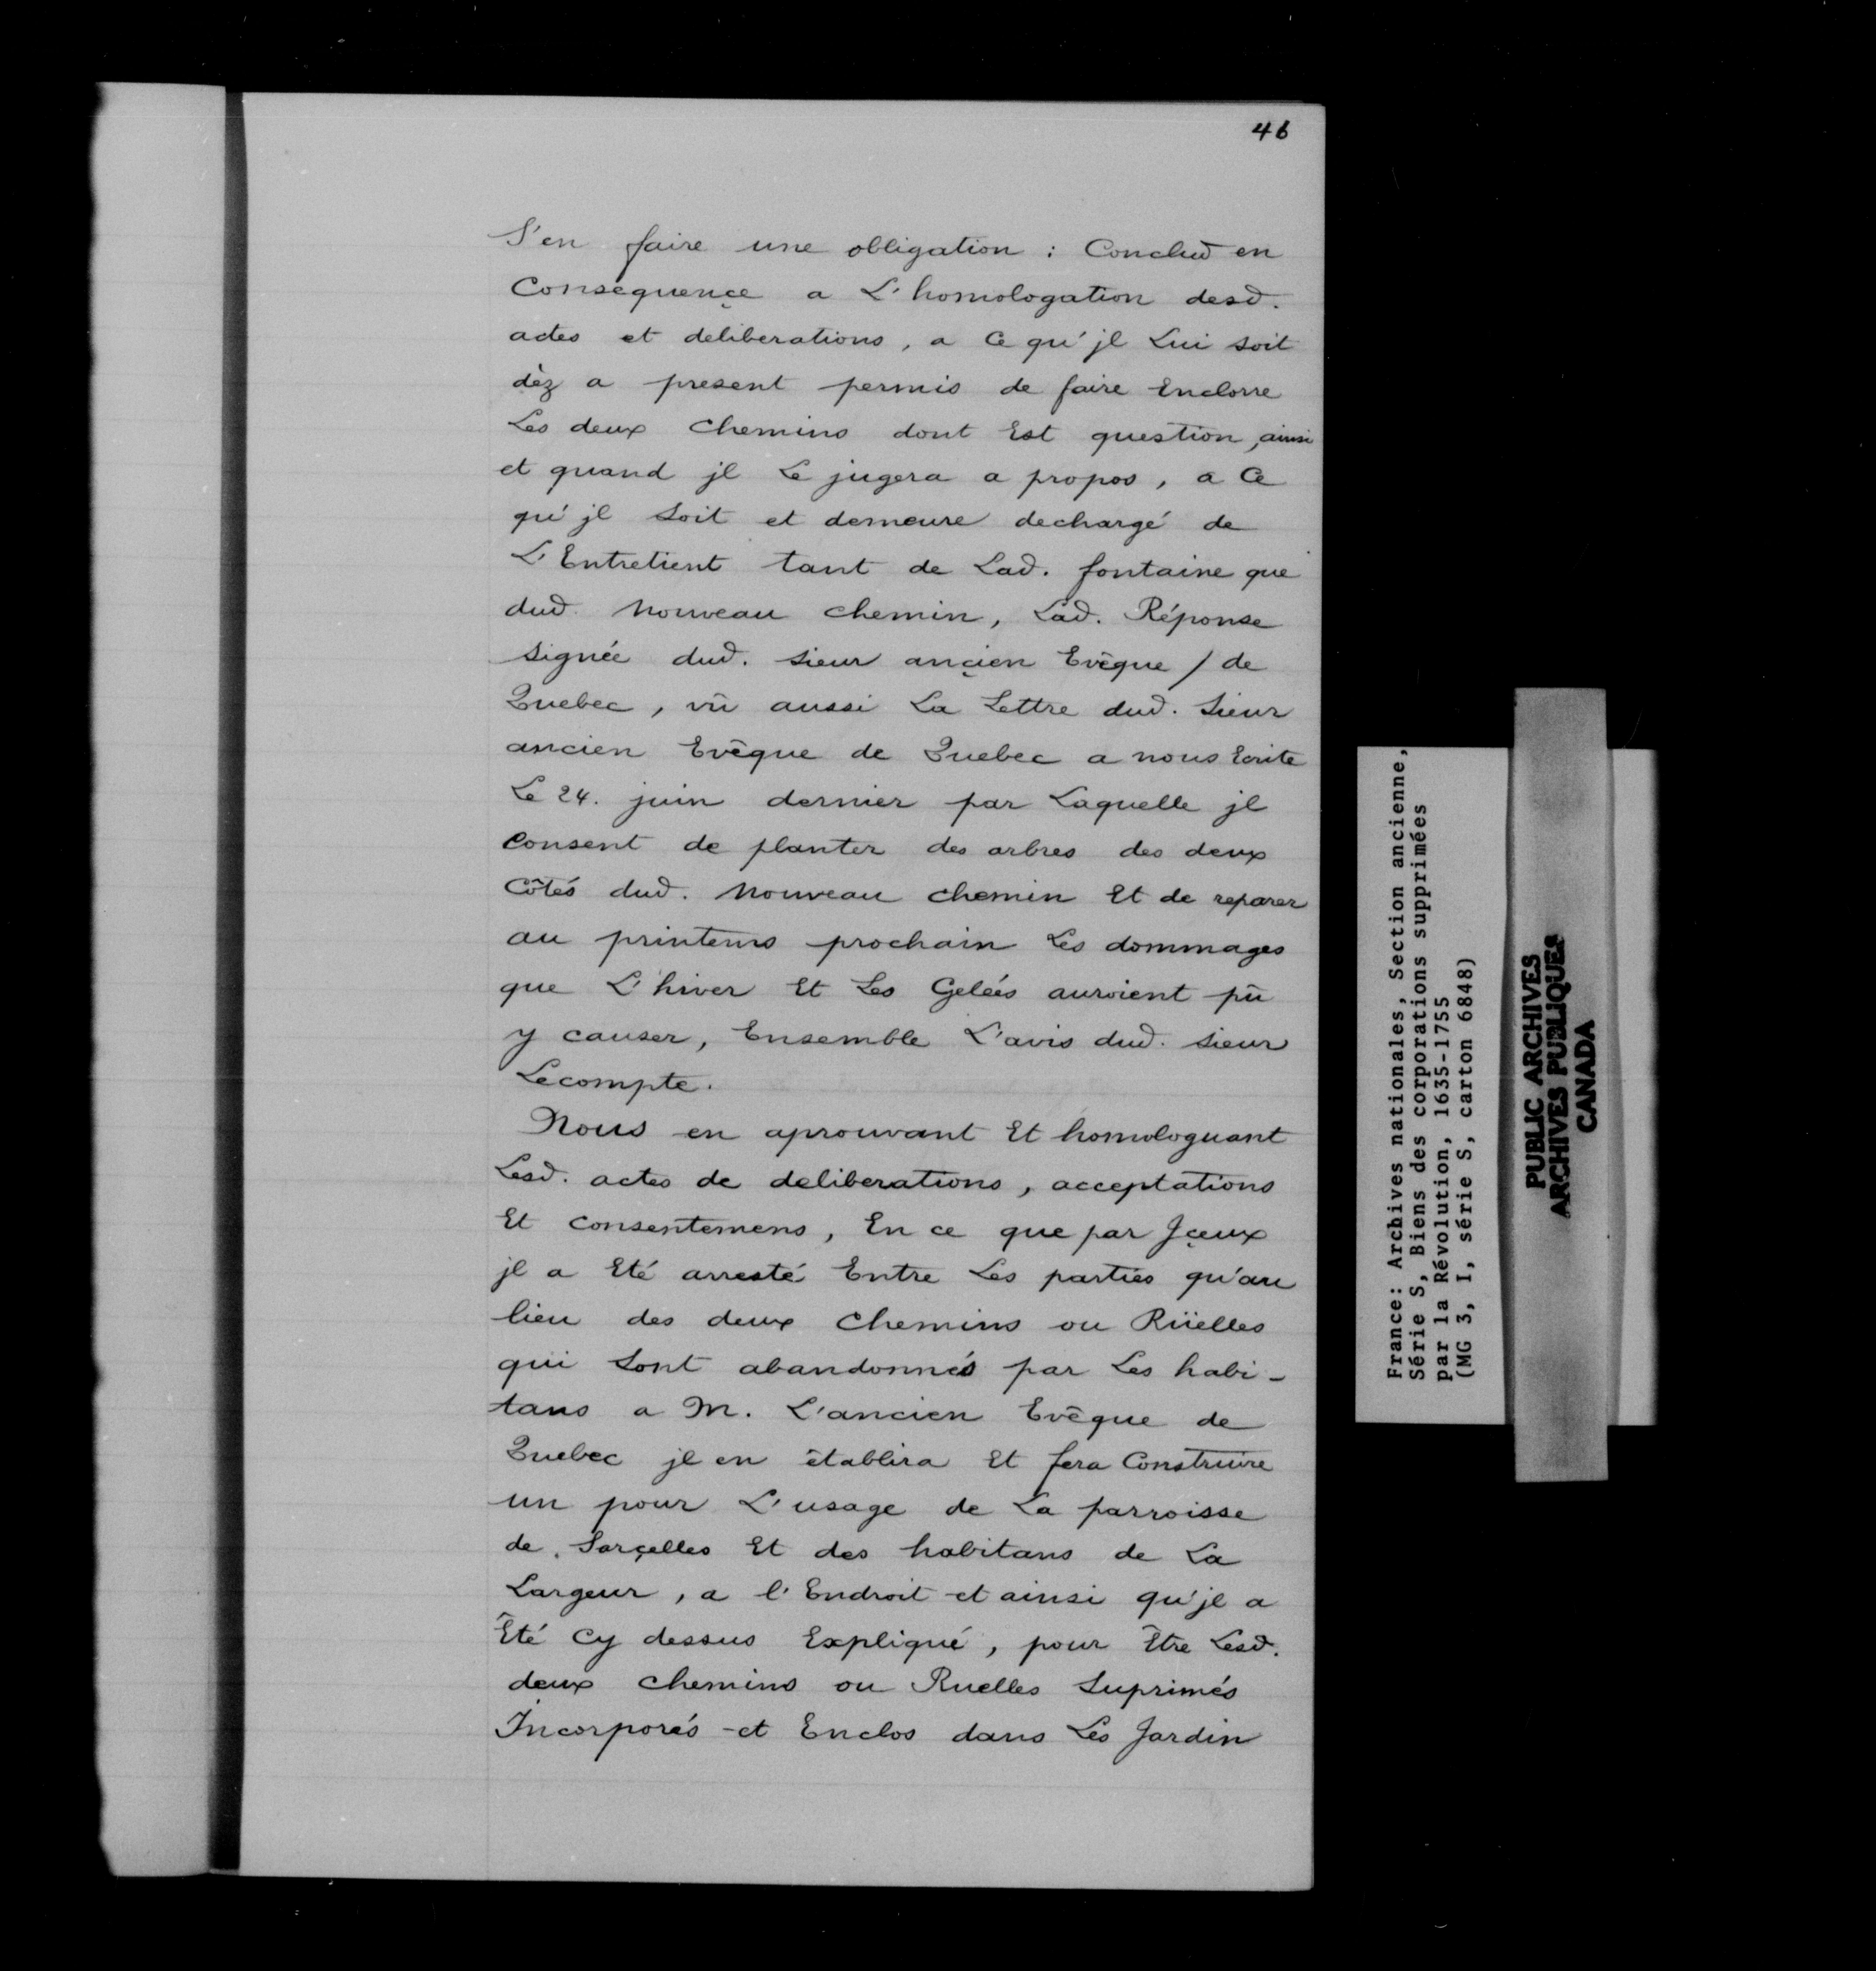 46
S'en faire une obligation : Conclud en
Conséquençe a L'homologation desd.
actes et deliberations, a Ce qu'jl Lui soit
dèz a present permis de faire Enclorre
Les deux Chemins dont Est question, ainsi
et quand jl Le jugera a propos, a Ce
qu'jl Soit et demeure dechargé de
L'Entretient tant de Lad. fontaine que
dud. Nouveau chemin, Lad. Réponse
signée dud. sieur ançien Evêque / de
Quebec, vû aussi La Lettre dud. Sieur
ancien Evêque de Quebec a nous Ecrite
Le 24. juin dernier par Laquelle jl
Consent de planter des arbres des deux
Côtés dud. Nouveau chemin Et de reparer
au printems prochain Les dommages
que L'hiver Et Les Gelées auroient pû
y causer, Ensemble L'avis dud. sieur
Lecompte.
Nous en aprouvant Et homologuant
Lesd. actes de deliberations, acceptations
Et Consentemens, En ce que par Jçeux
jl a Eté arresté Entre Les parties qu'au
lieu des deux Chemins ou Rüelles
qui Sont abandonnés par Les habi-
tans a M. L'ancien Evêque de
Quebec jl en établira Et fera Construire
un pour L'usage de La parroisse
de Sarçelles Et des habitans de La
Largeur, a l'Endroit et ainsi qu'jl a
Eté Cy dessus Expliqué, pour Être Lesd.
deux Chemins ou Ruelles Suprimés
Incorporés et Enclos dans Les Jardin
France: Archives nationales, Section ancienne,
Série S, Biens des corporations supprimées
par la Révolution, 1635-1755
(MG 3, I, série S, carton 6848)
PUBLIC ARCHIVES
ARCHIVES PUBLIQUES
CANADA